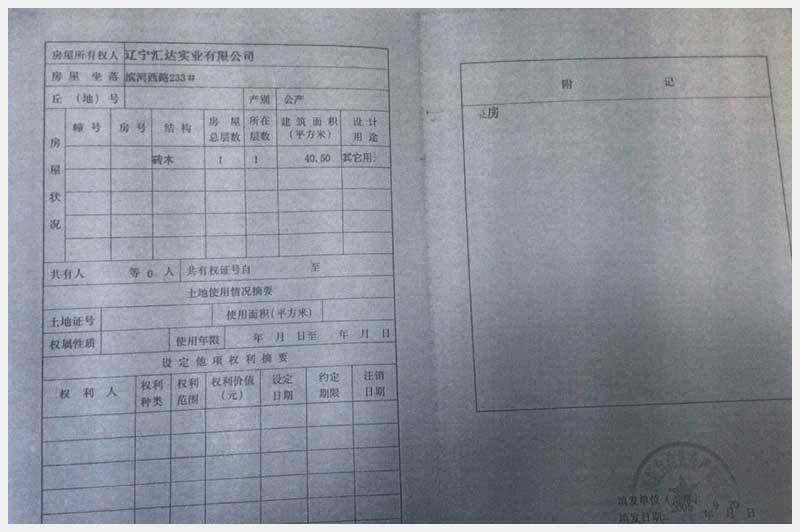 房屋所有权人 辽宁汇达实业有限公司
房屋坐落 滨河西路233#
丘（地）号 产别 公产
房屋状况
幢号 房号 结构 房屋总层数 所在层数 建筑面积（平方米） 设计用途
砖木 1 1 40.50 其它用:
共有人 等0人 共有权证号自 至
土地使用情况摘要
土地证号 使用面积（平方米）
权属性质 使用年限 年 月 日至 年 月 日
设定他项权利摘要
权利人 权利种类 权利范围 权利价值（元） 设定日期 约定期限 注销日期
附 记
房
填发单位（盖章）
填发日期: 2005 年 9 月 20 日